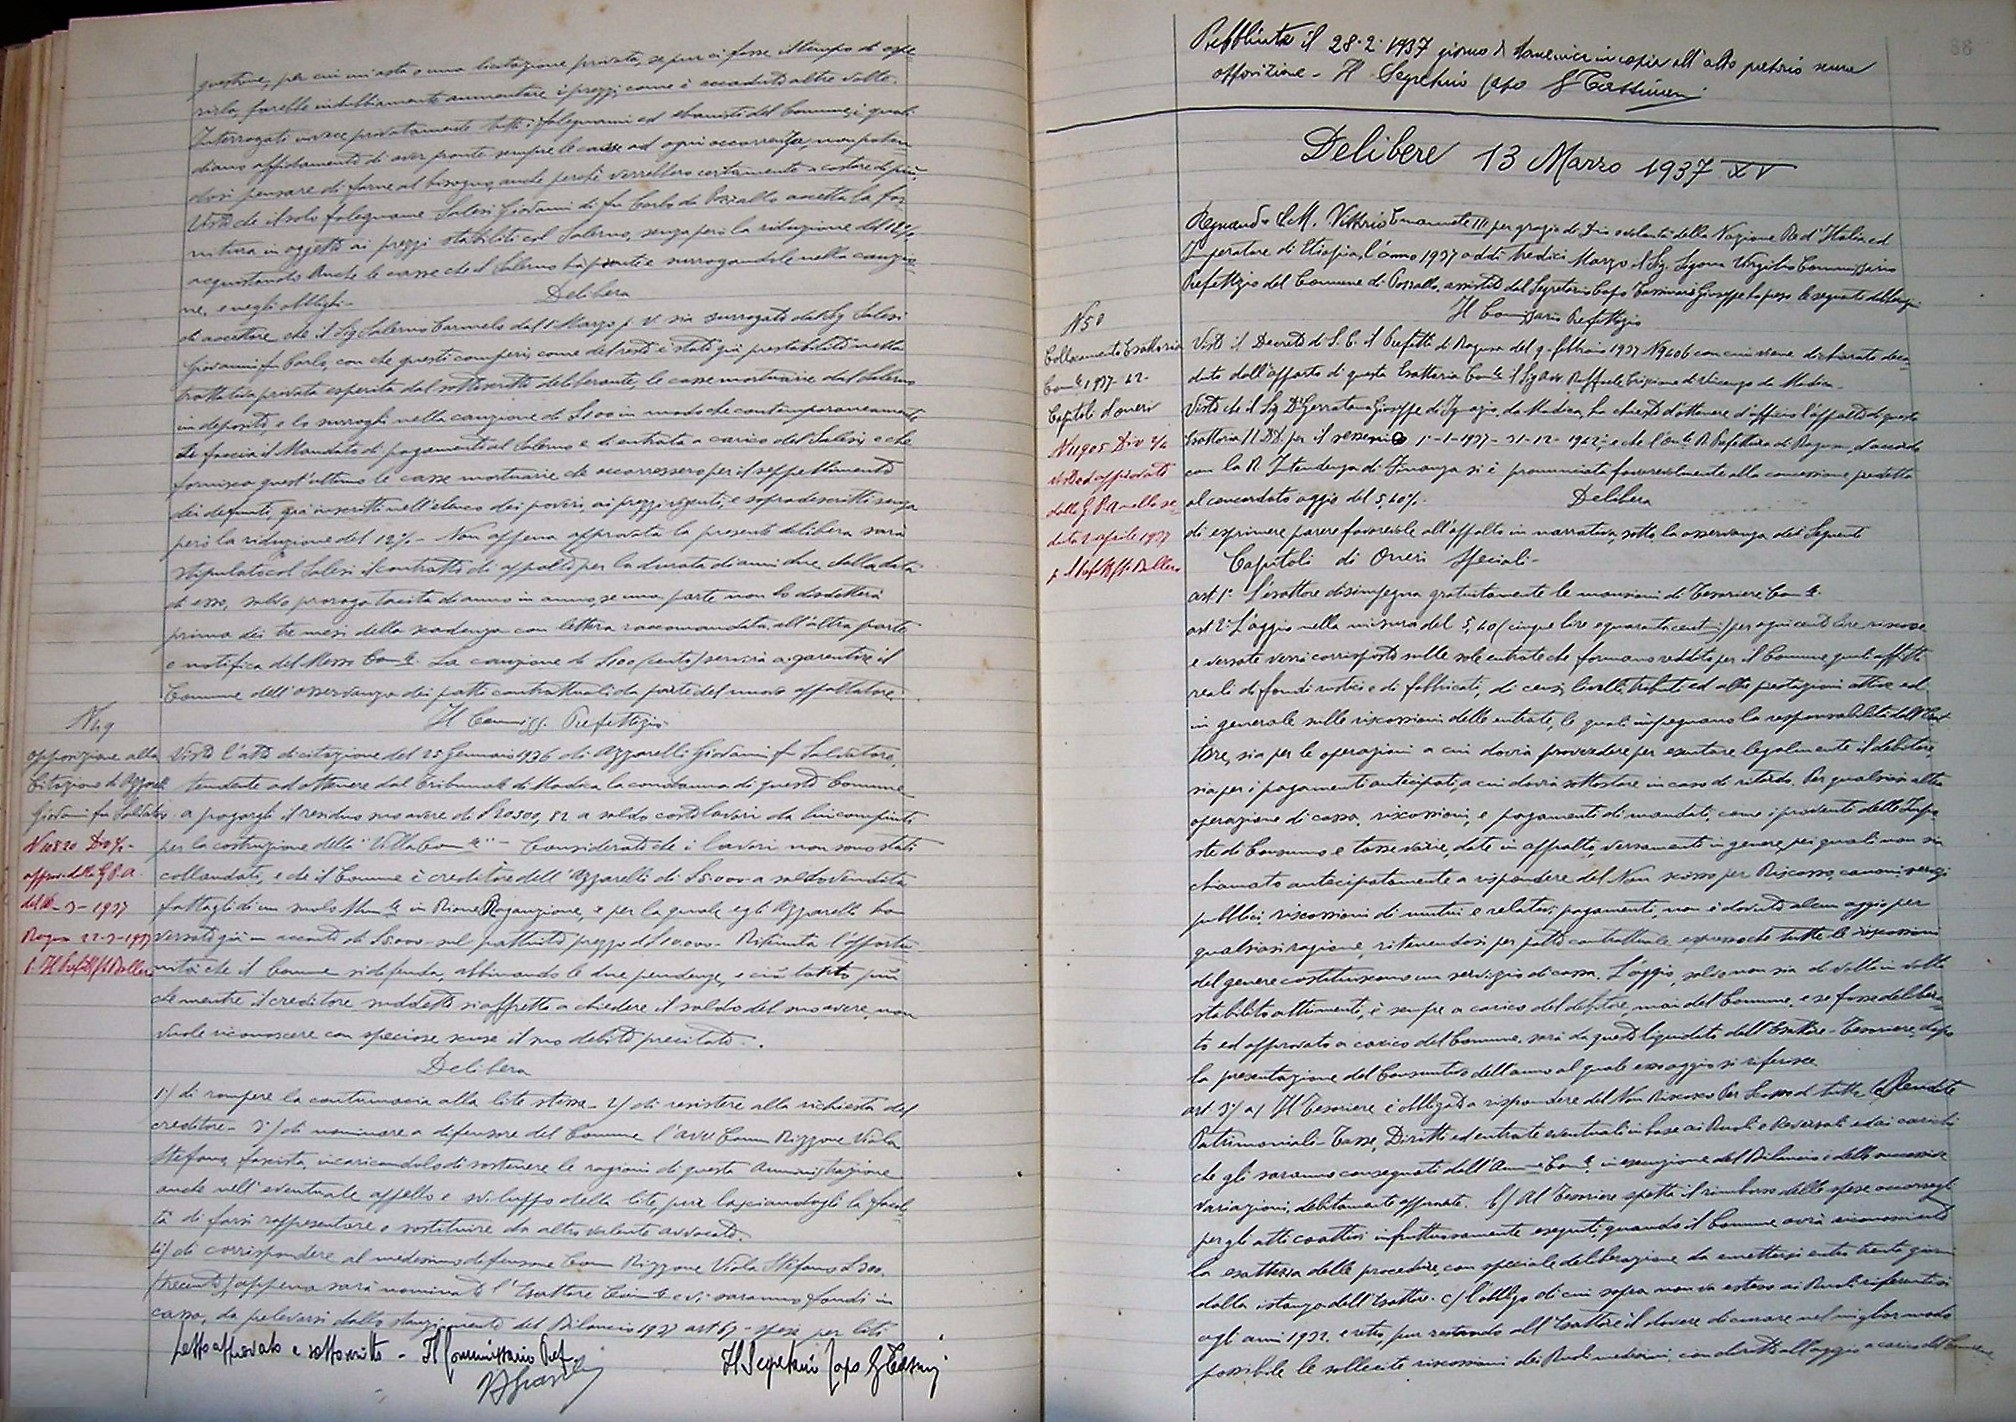 questione, per cui un'asta o una licitazione privata, se pur ci fosse il tempo di espe-
rirla, farebbe indubbiamente aumentare i prezzi, come è accaduto altre volte.
Interrogati invece privatamente tutti i falegnami ed ebanisti del Comune, i quali
diano affidamento di aver pronte sempre le casse ad ogni occorrenza, non poten
dosi pensare di farne al bisogno, anche perché verrebbero certamente a costare di più.
Visto che il solo falegname Salesi Giovanni di fu Carlo da Pozzallo accetta la for
nitura in oggetto ai prezzi stabiliti col Salerno, senza però la riduzione del 12%
acquistando anche le casse che il Salerno ha pronte e surrogandole nella cauzio
ne, e negli obblighi-
Delibera
di accettare che il Sig. Salerno Carmelo dal 1 Marzo p. v. sia surrogato dal Sig Salesi
Giovanni fu Carlo, con che questi comperi, come del resto è stato già prestabilito nella
trattativa privata esperita dal sottoscritto deliberante, le casse mortuarie dal Salerno
in deposito, e lo surroghi nella cauzione di £100 in modo che contemporaneamente
si faccia il Mandato di pagamento al Salerno e di entrata a carico del Salesi, e che
fornisca quest'ultimo le casse mortuarie che occorressero per il seppellimento
dei defunti, già inscritti nell'elenco dei poveri, ai prezzi vigenti, e sopradescritti senza
però la riduzione del 12%- Non appena approvata la presente delibera sarà
stipulato col Salesi il contratto di appalto per la durata di anni due dalla data
di esso, salvo proroga tacita di anno in anno, se una parte non lo disdetterà
prima dei tre mesi della scadenza con lettera raccomandata all'altra parte
o notifica del Messo Com.le. La cauzione di £100 (cento) servirà a garantire il
Comune dell'osservanza dei patti contrattuali da parte del nuovo appaltatore.
N 49
Il Commiss. Prefettizio
opposizione alla
Citazione di Azzarelli
Giovanni fu Salvatore
N 10820 Div 2/1-
approv. dalla G.P.A.
-3-1937
Ragusa 22-3-1937
p. Il Prefetto
Visto l'atto di citazione del 25 Gennaio 1936 di Azzarelli Giovanni fu Salvatore,
tendente ad ottenere dal Tribunale di Modica la condanna di questo Comune
a pagargli il residuo suo avere di £20500,82 a saldo costo lavori da lui compiuti
per la costruzione della "Villa Com.le"- Considerato che i lavori non sono stati
collaudati, e che il Comune è creditore dell'Azzarelli di £5.000 a saldo vendita
fattagli di un suolo Com.le in Rione Raganzino, e per la quale egli Azzarelli ha
versato già in acconto di £5000- sul pattuito prezzo di £10.000- Ritenuta l'opportu
nità che il Comune si difenda, abbinando le due pendenze, e ciò tanto più
che mentre il creditore suddetto si affretta a chiedere il saldo del suo avere, non
vuole riconoscere con speciose scuse il suo debito precitato.
Delibera
1°/ di rompere la contumacia alla lite stessa- 2/ di resistere alla richiesta del
creditore- 3°/ di nominare a difensore del Comune l'avv. Comm Rizzone Viola
Stefano, fascista, incaricandolo di sostenere le ragioni di questa Amministrazione
anche nell'eventuale appello e sviluppo della lite, pure lasciandogli la facol-
tà di farsi rappresentare o sostituire da altro valente avvocato-
4°/ di corrispondere al medesimo difensore Comm Rizzone Viola Stefano £300.
(trecento) appena sarà nominato l'Esattore Com.le e vi saranno fondi in
cassa, da prelevarsi dallo stanziamento del Bilancio 1937 art 67- spese per liti
Letto approvato e sottoscritto - Il Commissario Pref.
Il Segretario Capo G Tassinari
Pubblicata il 28.2.1937 giorno di domenica in copia all'albo pretorio senza
opposizione - Il Segretario Capo G Tassinari
Delibere 13 Marzo 1937 XV
Regnando S.M. Vittorio Emanuele III per grazia di Dio e volontà della Nazione Re d'Italia ed
Imperatore di Etiopia, l'anno 1937 addì tredici Marzo il Sig. Sigona Virgilio Commissario
Prefettizio del Comune di Pozzallo, assistito dal Segretario Capo Tassinari Giuseppe ha preso le seguenti deliberaz.
Il Commissario Prefettizio
N 50
Collocamento Esattoria
Com.le 1937-42-
Capitoli d'oneri
N 11905 Div 2/1
visto ed approvato
dalla G.P.A. nella se-
duta 2 aprile 1937
p. Il Prefetto
Visto il Decreto di S.E. il Prefetto di Ragusa del 9 febbraio 1937 N 9606 con cui viene dichiarato deca-
duto dall'appalto di questa Esattoria Com.le il Sig Avv Raffaele Grisione di Vincenzo da Modica-
Visto che il Sig Dr Gerratana Giuseppe di Ignazio, da Modica, ha chiesto d'ottenere d'ufficio l'appalto di questa
Esattoria II.DD. per il sessennio 1-1-1937-31-12-1942; e che l'On.le R. Prefettura di Ragusa, d'accordo
con la R. Intendenza di Finanza si è pronunciata favorevolmente alla concessione predetta
al concordato aggio del 5,40%.
Delibera
di esprimere parere favorevole all'appalto in narrativa, sotto la osservanza dei seguenti
Capitoli di Oneri Speciali-
art. 1° L'esattore disimpegna gratuitamente le mansioni di Tesoriere Com.le.
art 2° L'aggio nella misura del 5,40 (cinque lire e quaranta cent.) per ogni cento lire riscosse
e versate verrà corrisposto sulle sole entrate che formano reddito per il Comune quali affitti
reali di fondi rustici e di fabbricati, di censi, livelli, tributi ed altre prestazioni attive ed
in generale sulle riscossioni delle entrate, le quali impegnano la responsabilità dell'Esat-
tore, sia per le operazioni a cui dovrà provvedere per esentare legalmente il debitore,
sia per i pagamenti anticipati, a cui dovrà sottostare in caso di ritardo. Per qualsiasi altra
operazione di cassa, riscossioni, e pagamenti di mandati, come i proventi delle Impo
ste di Consumo e tasse varie, date in appalto, versamenti in genere, pei quali non sia
chiamato anticipatamente a rispondere del Non riscosso per Riscosso, canoni servizi
pubblici, riscossioni di mutui e relativi pagamenti, non è dovuto alcun aggio per
qualsiasi ragione, ritenendosi per patto contrattuale espresso che tutte le riscossioni
del genere costituiscano un servizio di cassa. L'aggio, salvo non sia di volta in volta
stabilito altrimenti, è sempre a carico del debitore, mai del Comune, e se fosse delibera-
to ed approvato a carico del Comune, sarà da questo liquidato dall'Esattore-Tesoriere, dopo
la presentazione del Consuntivo dell'anno al quale esso aggio si riferisce.
art 3°/ a/ Il Tesoriere è obbligato a rispondere del Non Riscosso Per Scosso di tutte le Rendite
Patrimoniali-Tasse, Diritti ed entrate eventuali in base ai Ruoli e Reversali ed ai carichi
che gli saranno consegnati dall'Amm.ne Com.le, in esecuzione del Bilancio e delle successive
variazioni, debitamente approvate. b/ Al Tesoriere spetta il rimborso delle spese
per gli atti coattivi infruttuosamente eseguiti, quando il Comune avrà riconosciuto
la esattezza delle procedure, con speciale deliberazione da emettersi entro trenta giorni
dalla istanza dell'Esattore. c/ l'obbligo di cui sopra non va esteso ai Ruoli riferentisi
agli anni 1932 e retro, pur restando all'Esattore il dovere di curare nel miglior modo
possibile le sollecite riscossioni dei Ruoli medesimi, con diritto all'aggio a carico del Comune